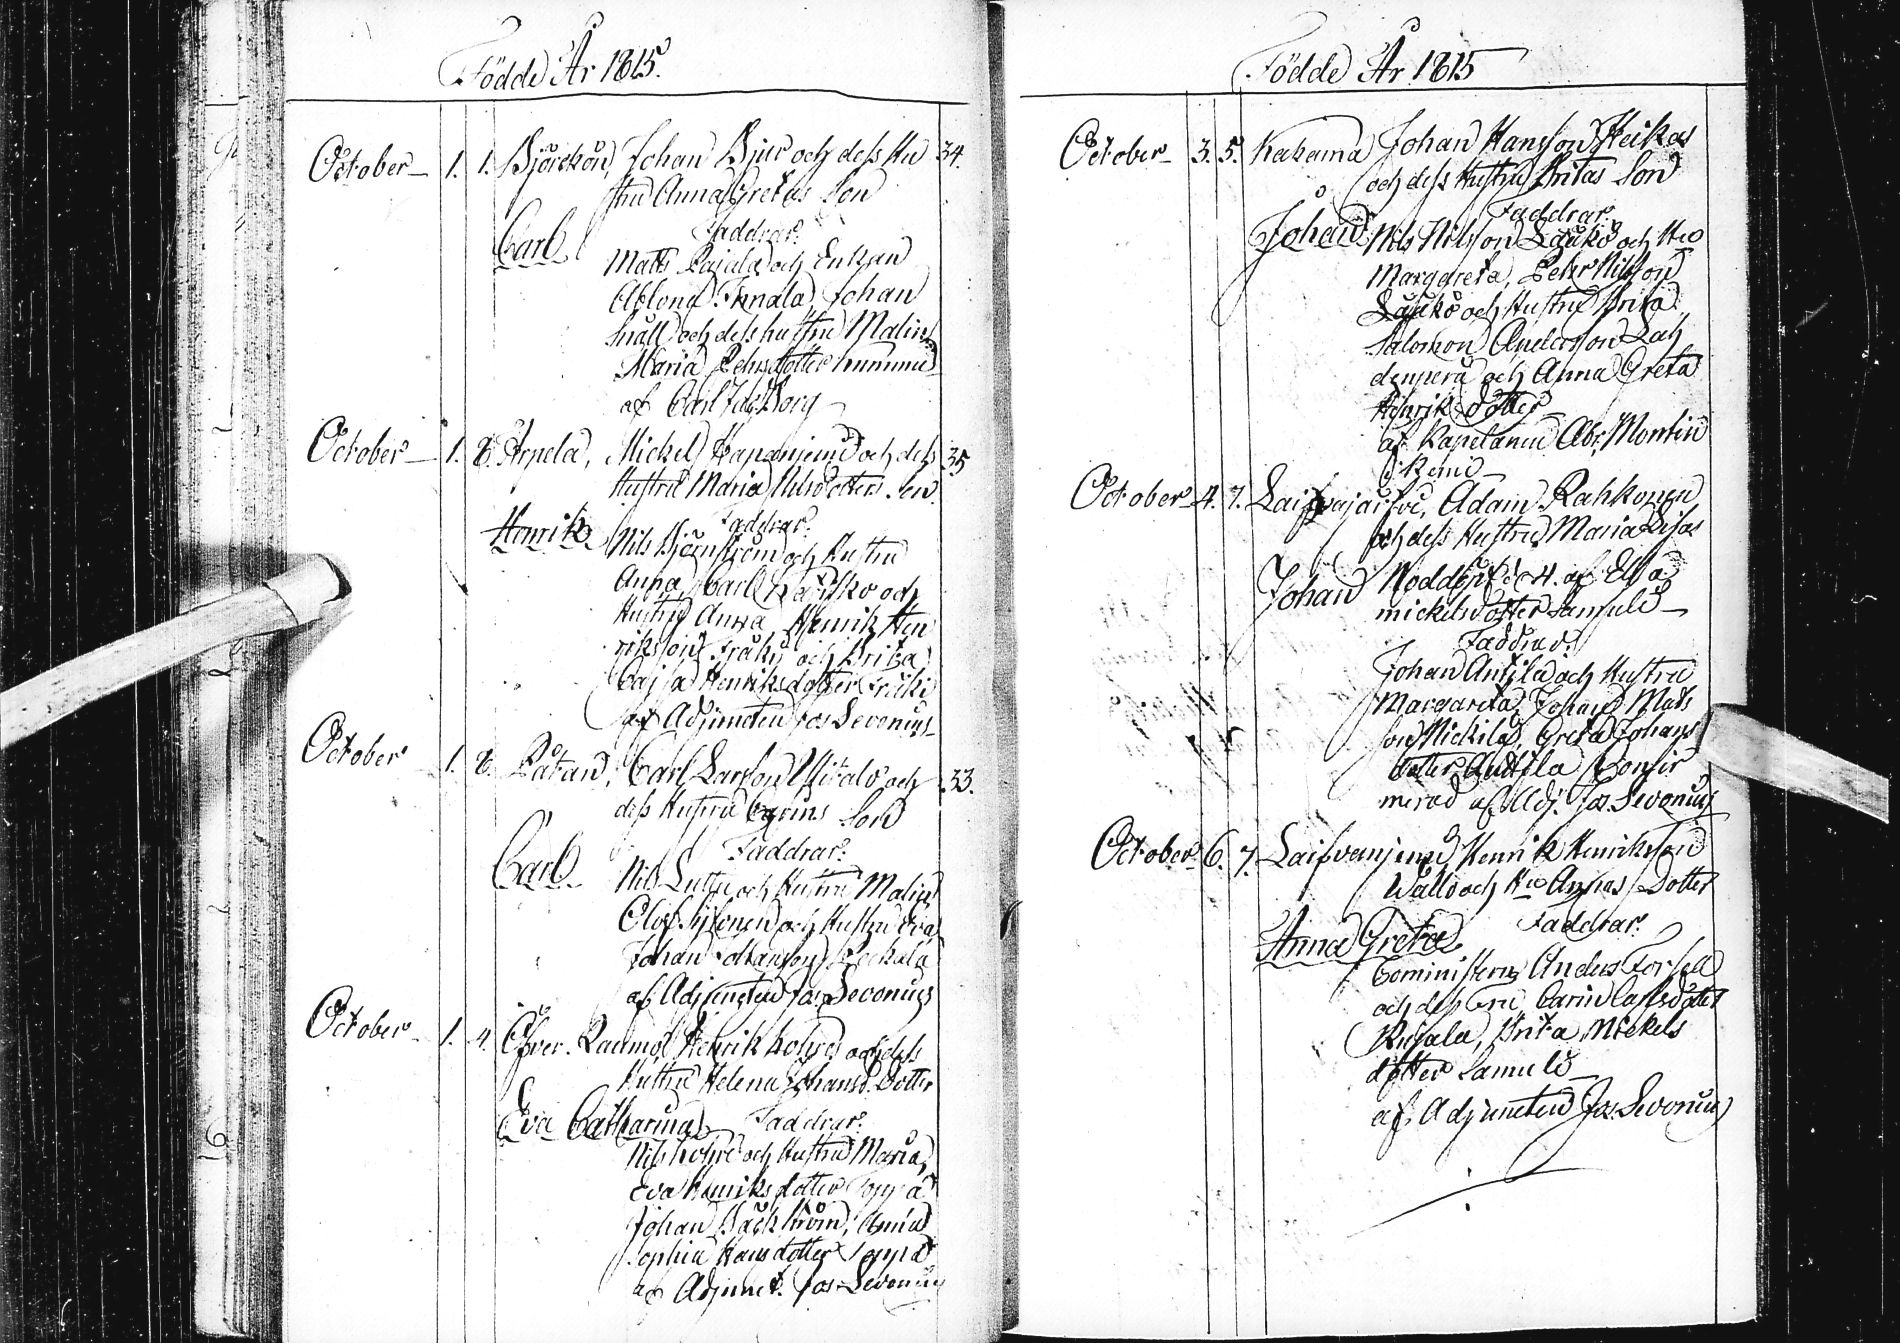 Födde År 1815.
October 1. 1. Björckön, Johan Bjur och dess Hu 34.
stru Anna Gretas Son
Carl
Faddrar:
Matts Pajala och Enkan
Johan
Snäll och dess hustru Malin,
Maria Pehrsdotter
af Carl Borg
October 1. Arpela, Mickel Hapaniemi och dess 35
Hustru Maria Nilsdotter Son
Henrik
Faddrar:
Nils Björnström och Hustru
Anna, Carl och
Hustru Anna Henrik Hen
riksson Fräki och Brita
Cajsa Henriksdotter Fräki
af Adjuncten Jos. Sevonius
October 1. Påtan, Carl Larson Vitalo och 33.
dess Hustru Carins Son
Carl
Faddrar:
Nils och Hustru Malin
Olof och Hustru Eva
Johan
af Adjuncten Jos Sevonius
October 1. 4. Öfver. Raumo, Henrik Kohre och dess
Hustru Helena Johansd. Dotter
Eva Catharina
Faddrar:
Nils Kohre och Hustru Maria,
Eva Henriksdotter Soppa
Johan Bäckström,
Sophia Hansdotter Soppa
af Adjunct. Jos. Sevonius
Födde År 1815
October 3. 5. Kakama Johan Hansson Heikas
och dess Hustru Britas Son
Johan
Faddrar:
Nils Nilsson Lauko och Hu
Margareta, Pehr Nilsson
Lauko och Hustru Brita
Salomon Andersson Lah
denperä och Anna Greta
Henriksdotter
af Kapelanen Abr. Montin
i Kemi
October 4. 7. Laifvajärfvi, Adam Rahkonen
och dess Hustru Maria Lisas
Johan
Nöddöpt d. 4. af Elsa
Mickelsdotter Samuli
Faddrar:
Johan Antila och Hustru
Margareta, Johan Mats
son Mickilä, Greta Johans
dotter Antila Confir
merad af Adj. Jos. Sevonius
October 6. 7. Laifvaniemi, Henrik Henriksson
Wallo och Hu Annas Dotter
Anna Greta
Faddrar:
Cominister Anders Forsell
och dess Fru, Carin Larsdotter
Kujala, Brita Mickels
dotter Samuli
af Adjuncten Jos. Sevonius